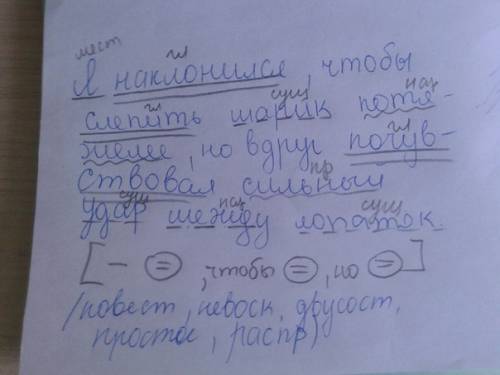 мест гл
Я наклонился, чтобы
гл сущ нар
слепить шарик потя-
гл
желее, но вдруг почув-
пр
ствовал сильный
сущ сущ
удар между лопаток.
[— (=), чтобы (=), но (=)]
/повест, невоск, двусост,
простое, распр)